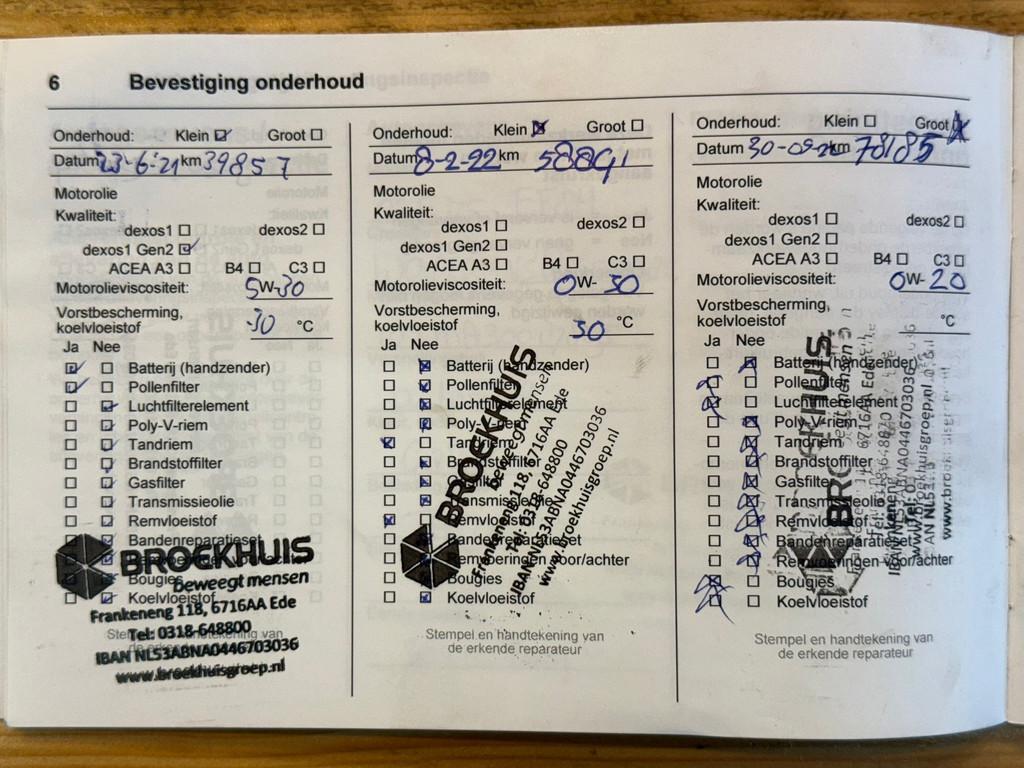 6 Bevestiging onderhoud
Onderhoud: Klein Groot
Datum 23-6-21 km 39857
Motorolie
Kwaliteit:
dexos1 dexos2
dexos1 Gen2
ACEA A3 B4 C3
Motorolieviscositeit: 5W-30
Vorstbescherming,
koelvloeistof -30 °C
Ja Nee
Batterij (handzender)
Pollenfilter
Luchtfilterelement
Poly-V-riem
Tandriem
Brandstoffilter
Gasfilter
Transmissieolie
Remvloeistof
Bandenreparatieset
Bougies
Koelvloeistof
BROEKHUIS
beweegt mensen
Frankeneng 118, 6716AA Ede
Tel: 0318-648800
IBAN NL53ABNA0446703036
www.broekhuisgroep.nl
Onderhoud: Klein Groot
Datum 8-2-22 km
Motorolie
Kwaliteit:
dexos1 dexos2
dexos1 Gen2
ACEA A3 B4 C3
Motorolieviscositeit: 0W-30
Vorstbescherming,
koelvloeistof 30 °C
Ja Nee
Batterij (handzender)
Pollenfilter
Luchtfilterelement
Poly-V-riem
Tandriem
Brandstoffilter
Transmissieolie
Remvloeistof
Bandenreparatieset
Remvoeringen voor/achter
Bougies
Koelvloeistof
BROEKHUIS
beweegt mensen
Frankeneng 118, 6716AA Ede
Tel: 0318-648800
IBAN NL53ABNA0446703036
www.broekhuisgroep.nl
Stempel en handtekening van
de erkende reparateur
Onderhoud: Klein Groot
Datum km 78185
Motorolie
Kwaliteit:
dexos1 dexos2
dexos1 Gen2
ACEA A3 B4 C3
Motorolieviscositeit: 0W-20
Vorstbescherming,
koelvloeistof °C
Ja Nee
Batterij (handzender)
Pollenfilter
Luchtfilterelement
Poly-V-riem
Tandriem
Brandstoffilter
Gasfilter
Transmissieolie
Remvloeistof
Bandenreparatieset
Remvoeringen voor/achter
Bougies
Koelvloeistof
BROEKHUIS
6716AA Ede
www.broekhuisgroep.nl
Stempel en handtekening van
de erkende reparateur